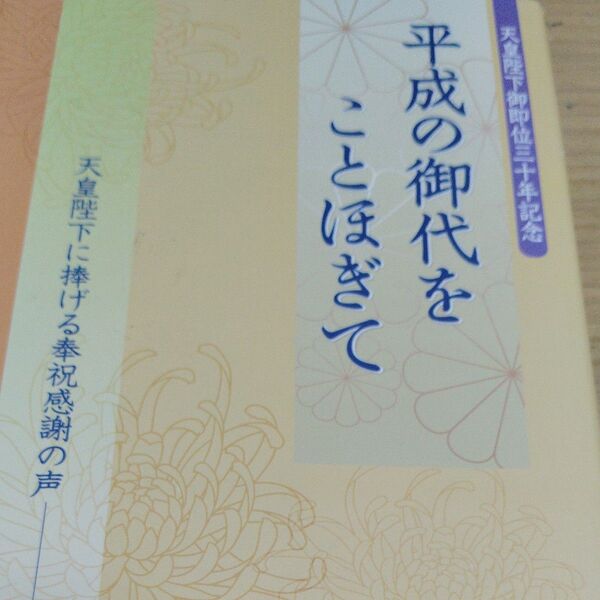 天皇陛下御即位三十年記念
平成の御代を
ことほぎて
天皇陛下に捧げる奉祝感謝の声